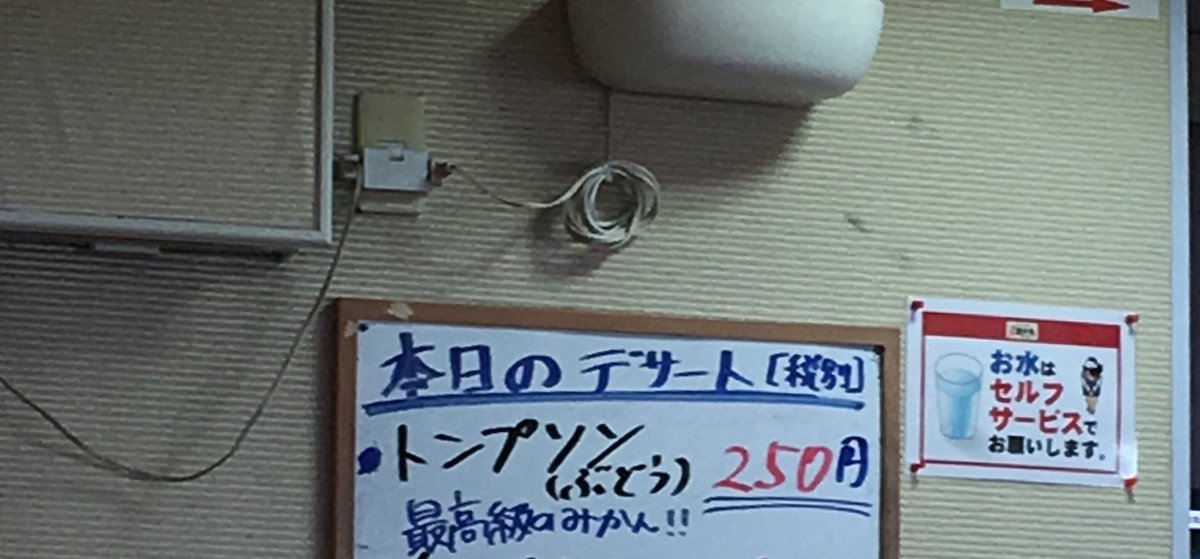 本日のデザート [税別]
・トンプソン 250円
(ぶどう)
最高級のみかん!!
お水は
セルフ
サービスで
お願いします。